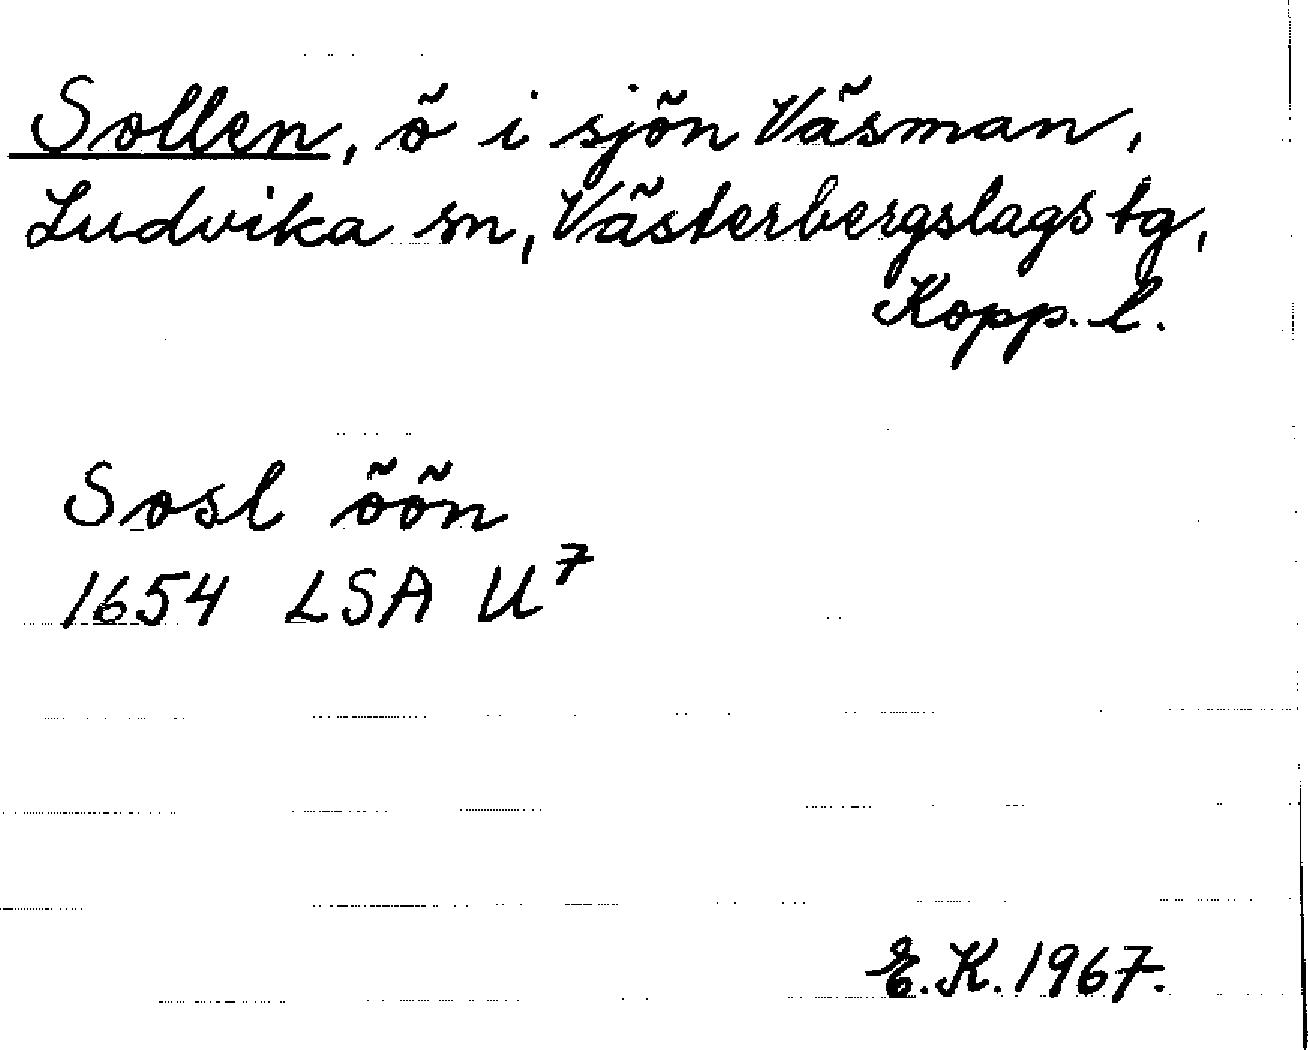 Sollen, ö i sjön Väsman,
Ludvika sn, Västerbergslags tg,
Kopp. l.
Sosl öön
1654 LSA U⁷
E.K. 1967.